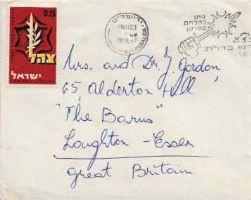 0.15
צה"ל
ישראל
ירושלים
Mrs. and Dr. J. Gordon
65 Alderton Hill
"The Barns"
Loughton - Essex
Great Britain